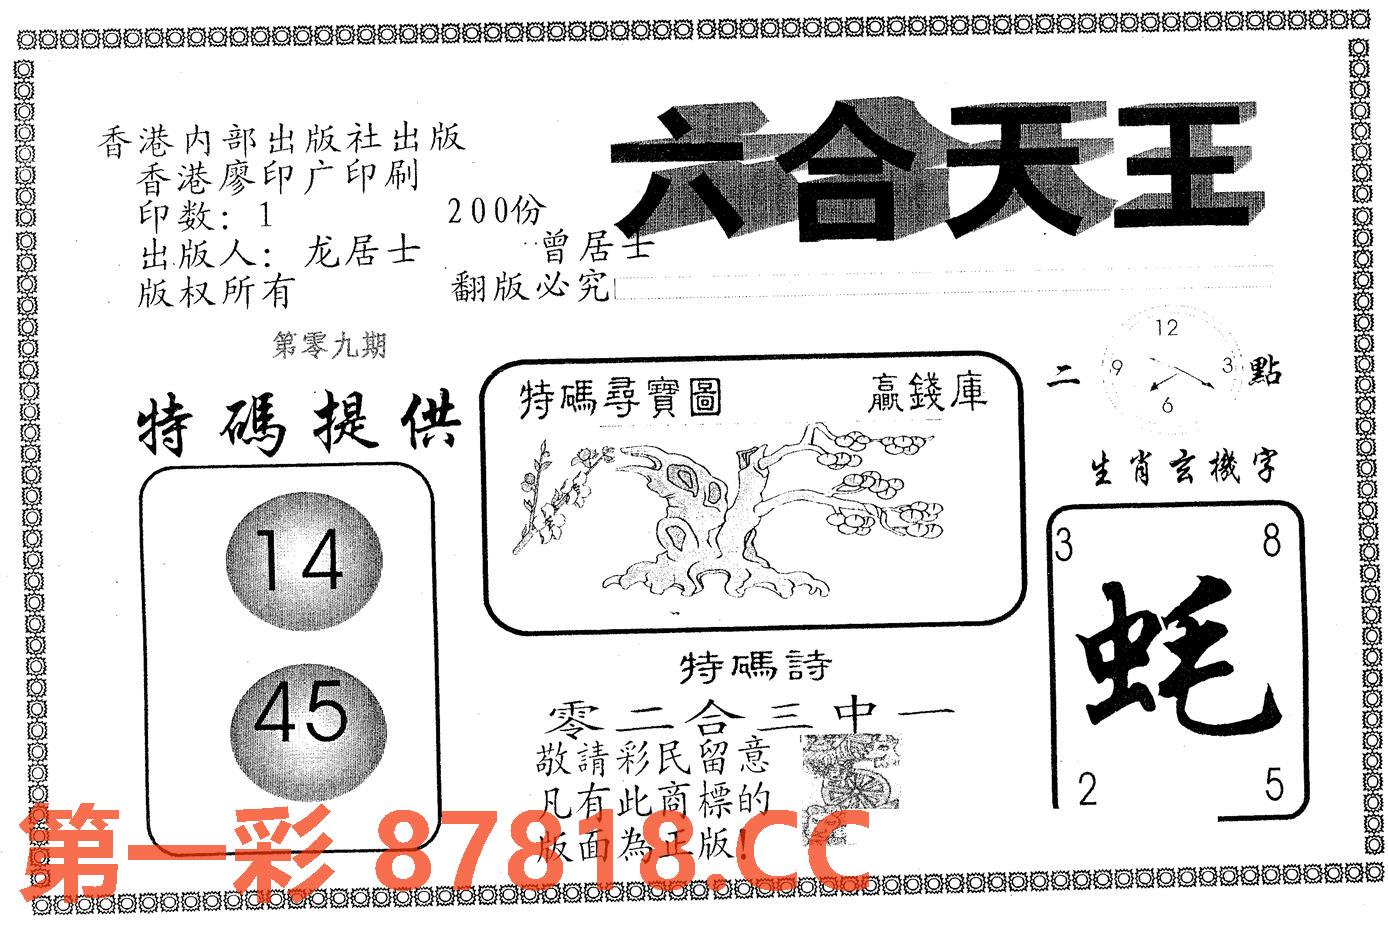 六合天王
香港内部出版社出版
香港廖印广印刷
印数：1 200份
出版人：龙居士 曾居士
版权所有 翻版必究
第零九期
特碼提供
14
45
特碼尋寶圖 贏錢庫
二 點
12
9 3
6
生肖玄機字
3 8
蚝
2 5
特碼詩
零二合三中一
敬請彩民留意
凡有此商標的
版面為正版!
第一彩 87818.CC